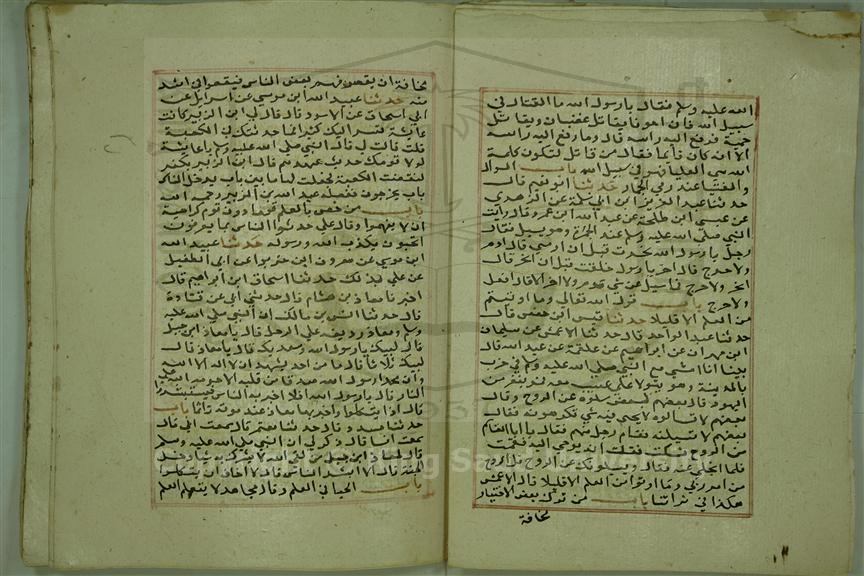 الله عليه وسلم فقال يا رسول الله ما القتال في
سبيل الله فان احدنا يقاتل غضبا ويقاتل
حمية فرفع اليه راسه قال وما رفع اليه راسه
الا انه كان قائما فقال من قاتل لتكون كلمة
الله هي العليا فهو في سبيل الله باب السوال
والفتيا عند رمي الجمار حدثنا ابو نعيم قال
حدثنا عبد العزيز ابن ابي سلمة عن الزهري
عن عيسى ابن طلحة عن عبد الله ابن عمرو قال رايت
النبي صلى الله عليه وسلم عند الجمرة وهو يسيل فقال
رجل يا رسول الله نحرت قبل ان ارمي قال ارم
ولا حرج قال اخر يا رسول حلقت قبل ان انحر قال
انحر ولا حرج فما سيل عن شي قدم ولا اخر الا قال افعل
ولا حرج باب قول الله تعالى وما اوتيتم
من العلم الا قليلا حدثنا قيس ابن حفص قال
حدثنا عبد الواحد قال حدثنا الاعمش عن سليمان
ابن مهران عن ابراهيم عن علقمة عن عبد الله قال
بينا انا امشي مع النبي صلى الله عليه وسلم في خرب
بالمدينة وهو يتوكا على عسيب معه فمر بنفر من
اليهود قال بعضهم لبعض سلوه عن الروح وقال
بعضهم لا تسالوه لا يجي فيه شي تكرهونه فقال
بعضهم لا نسيلنه فقام رجل منهم فقال يا ابا القاسم
ما الروح فسكت فقلت انه يوحى اليه فقمت
فلما انجلى عنه فقال ويسيلونك عن الروح قل الروح
من امر ربي وما اوتوا من العلم الا قليلا قال الاعمش
هكذا في قراتنا باب من ترك بعض الاختيار
مخافة
مخافة ان يقصر فهم بعض الناس فيقعوا في اشد
منه حدثنا عبيد الله ابن موسى عن اسرايل عن
ابي اسحاق عن الاسود قال قال لي ابن الزبير كانت
عايشة تسر اليك كثيرا فما حدثتك في الكعبة
قلت قالت لي قال النبي صلى الله عليه وسلم يا عايشة
لولا قومك حديث عهدهم قال ابن الزبير بكفر
لنقضت الكعبة فجعلت لها بابين باب يدخل الناس
باب يخرجون ففعله عبد الله بن الزبير رحمه الله
باب من خص بالعلم قوما دون قوم كراهية
ان لا يفهموا وقال علي حدثوا الناس بما يعرفون
اتحبون يكذب الله ورسوله حدثنا عبيد الله
ابن موسى عن معروف ابن خربوذ عن ابي الطفيل
عن علي بذلك حدثنا اسحاق ابن ابراهيم قال
اخبرنا معاذ بن هشام قال حدثني ابي عن قتادة
قال حدثنا انس بن مالك ان النبي صلى الله عليه
وسلم ومعاذ رديفه على الرحل قال يا معاذ ابن جبل
قال لبيك يا رسول الله وسعديك قال يا معاذ قال
لبيك ثلاثا قال ما من احد يشهد ان لا اله الا الله
وان محمدا رسول الله صدقا من قلبه الا حرمه الله على
النار قال يا رسول الله افلا اخبر به الناس فيستبشروا
قال اذا يتكلوا واخبر بها معاذ عند موته تاثما باب
حدثنا مسدد قال حدثنا معتمر قال سمعت ابي قال
سمعت انسا قال ذكر لي ان النبي صلى الله عليه وسلم
قال لمعاذ ابن جبل من لقي الله لا يشرك به شيا دخل
الجنة قال الا ابشر الناس قال لا اخاف ان يتكلوا
باب الحيا في العلم وقال مجاهد لا يتعلم العلم